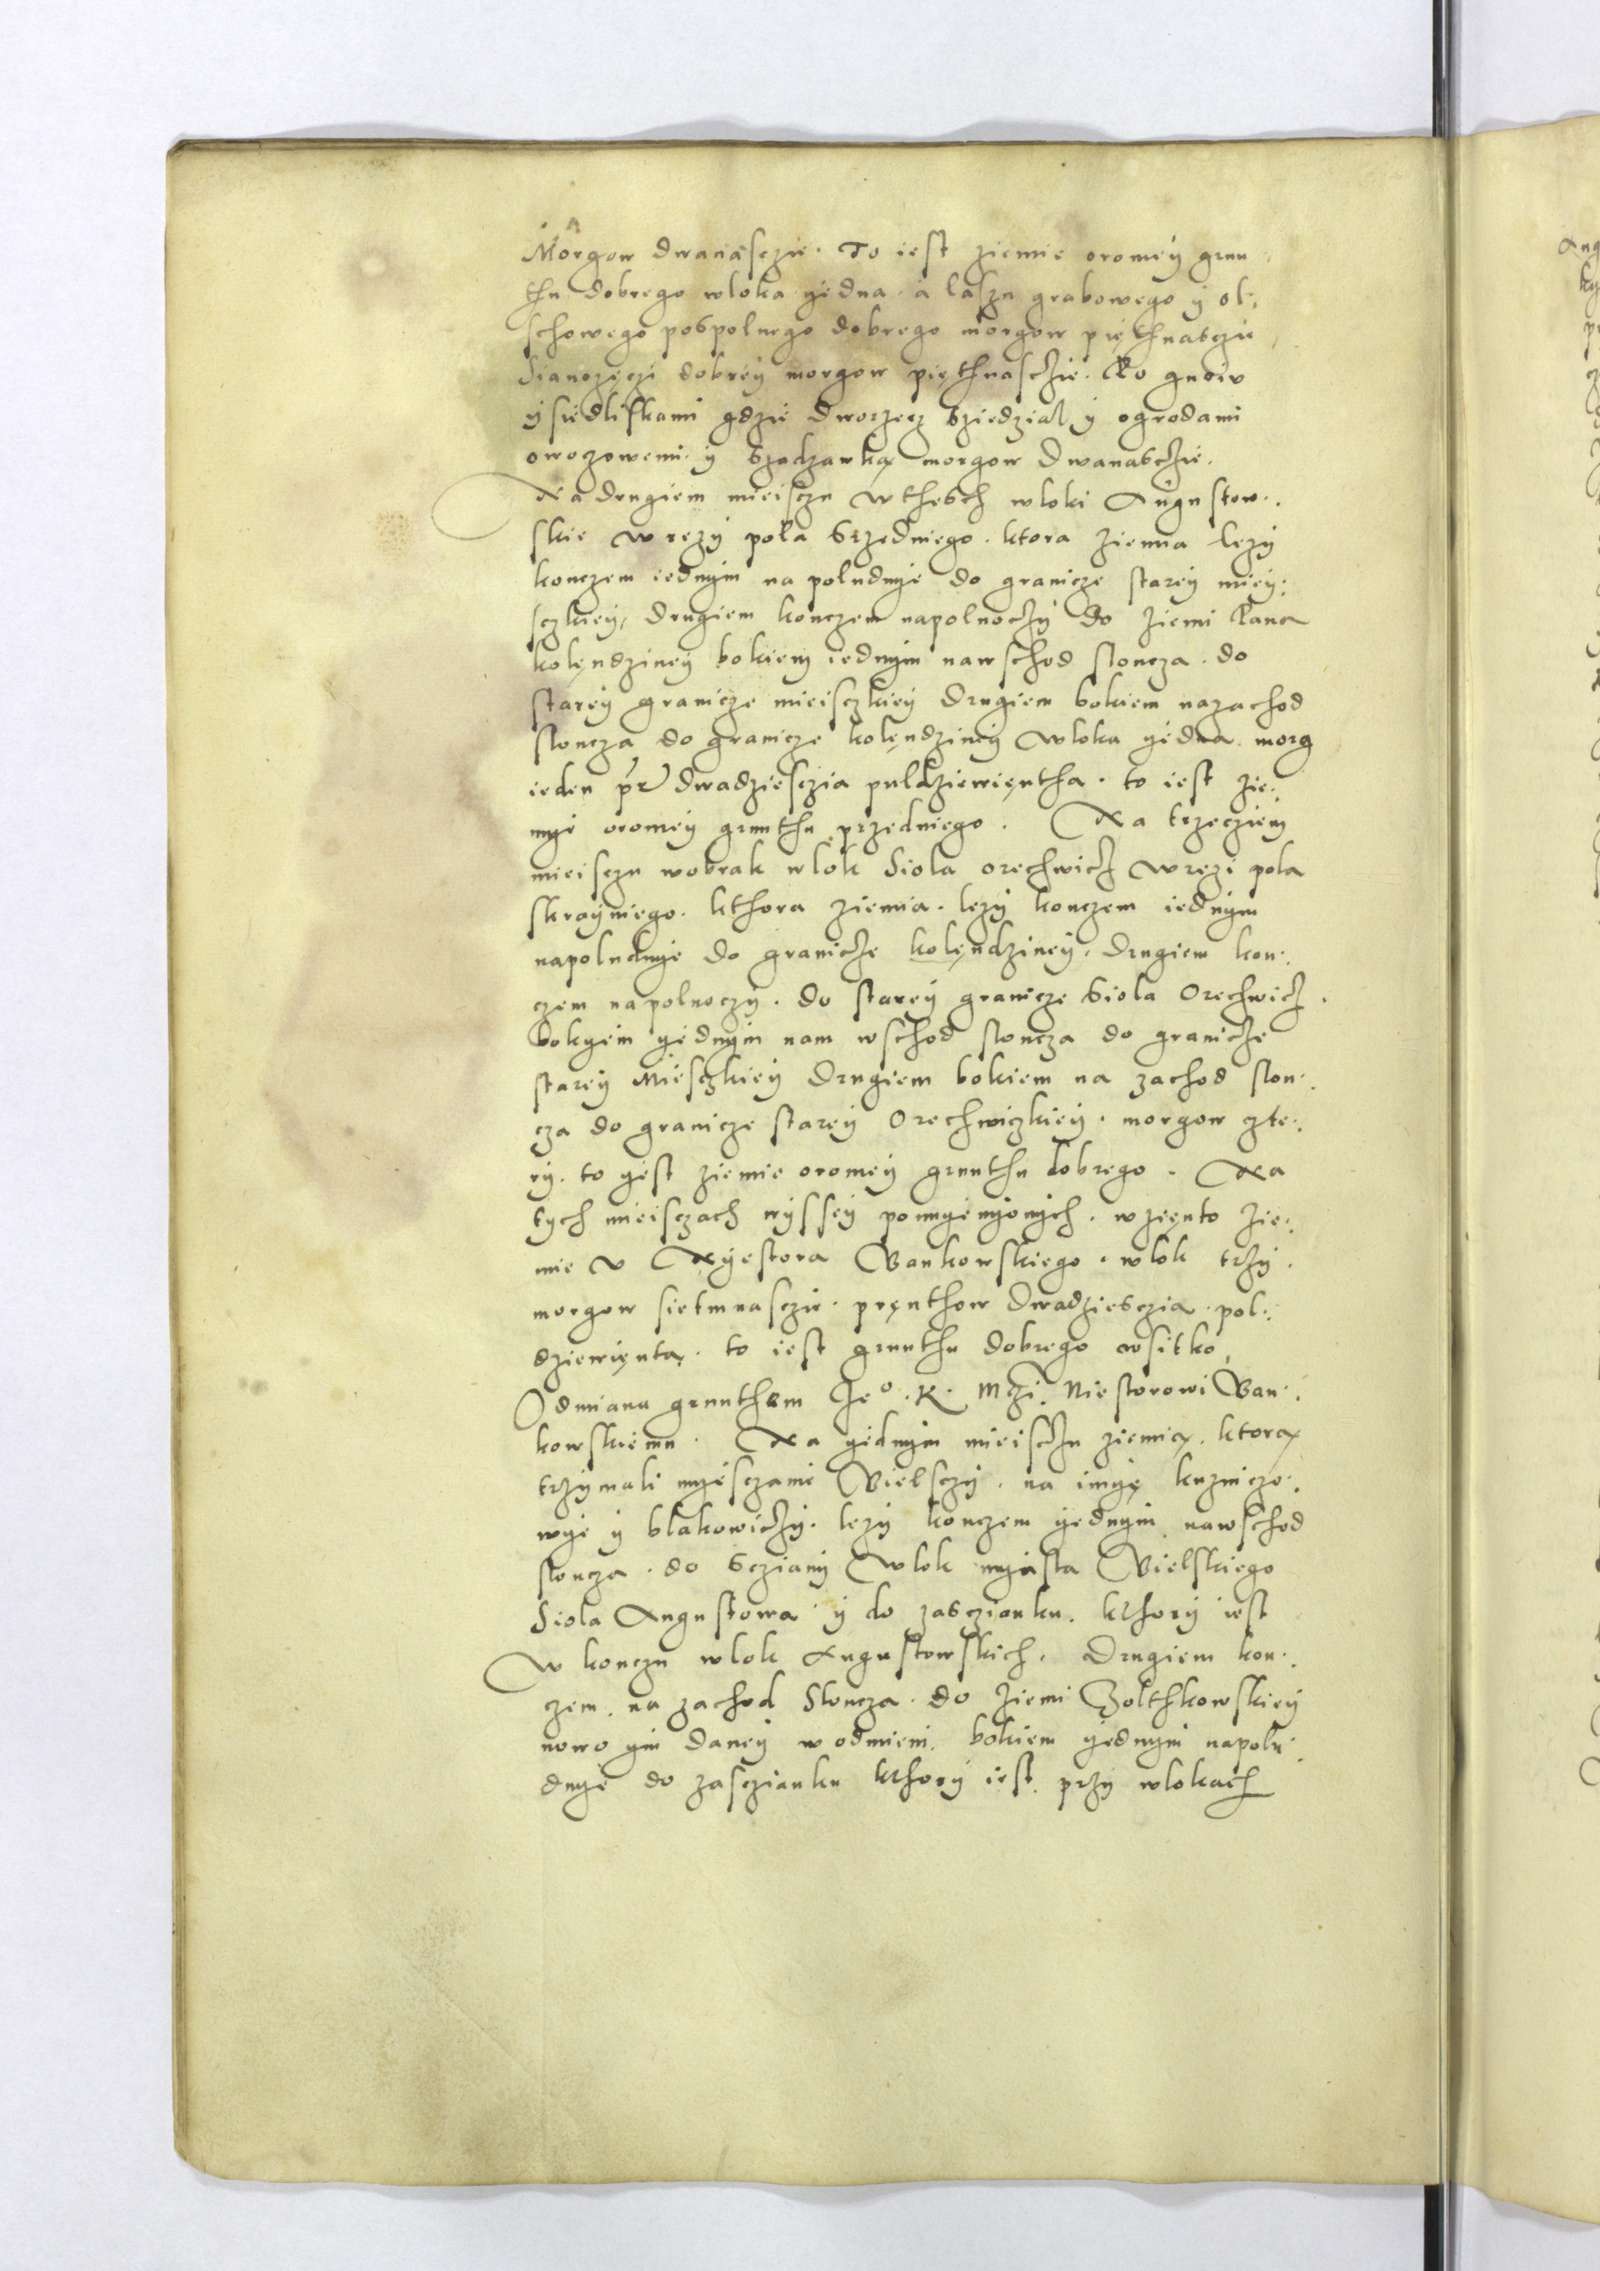 Morgow dwanasczie. To iest ziemie oromey grun
thu dobrego wloka yedna. a lassu grabowego y ol:
schowego pospolnego dobrego morgow piethnasczie
Sianozęczi dobrey morgow piethnasczie. Po gnoiu
y siedliskami gdzie dworzecz sziedzial y ogrodami
owoczowemi y szadzawką morgow dwanasczie.
Na drugiem mieisczu w thesch wloki Augustow:
skie w rezy pola srzedniego. ktora ziemia lezy
konczem iednym na poludnye do granicze starey miey:
sczkiey, drugiem konczem napolnoczy do ziemi Pana
kolęndziney bokiem iednym nawschod sloncza. do
starey granicze mieisczkiey drugiem bokiem nazachod
sloncza do granicze kolęndziney wloka yedna morg
ieden pr dwadziesczia puldziewięntha. to iest zie:
mye oromey grunthu przedniego. Na trzecziem
mieisczu wobrak wlok Siola orechwicz w rezi pola
skrayniego. kthora ziemia. lezy konczem iednym
napoludnye do granicze kolęndziney. drugiem kon:
czem napolnoczy. do starey granicze siola Orechwicz.
bokyem yednym nam wschod sloncza do granicze
starey Miesczkiey drugiem bokiem na zachod slon:
cza do granicze starey Orechwiczkiey. morgow czte:
ry. to yest ziemie oromey grunthu dobrego. Na
tych mieisczach wyssey pomyenyonych. wzięnto zie:
mie v Nyestora Wankowskiego. wlok trzy.
morgow sietmnasczie. pręnthow dwadziesczia. pol:
dziewięnta. to iest grunthu dobrego wsitko
Odmiana grunthem Je⁰. K. Mczi. Niestorowi Wan:
kowskiemu. Na yednym mieisczu ziemią, ktorą
trzymali myesczanie Bielsczy. na imyę kuznicze:
wye y blakowiczy. lezy konczem yednym nawschod
sloncza. do scziany wlok myasta Bielskiego
Siola Augustowa y do zasczianku. kthory iest
W konczu wlok Augustowskich. Drugiem kon:
czem. na zachod Sloncza. do ziemi Zolthkowskiey
nowo ym daney w odmieni. bokiem yednym napolu
dnye do zasczianku kthory iest przy wlokach